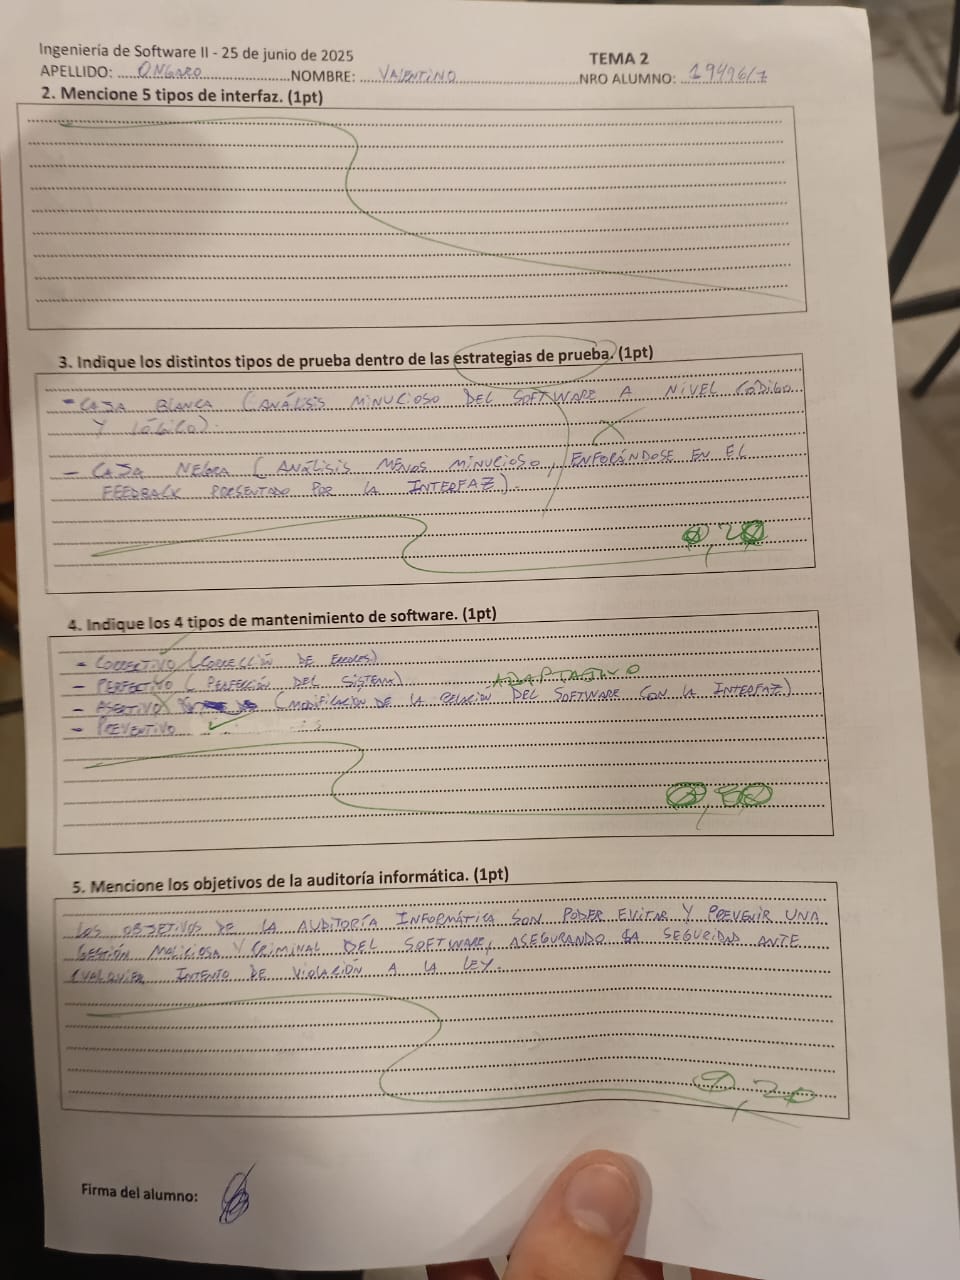 Ingeniería de Software II - 25 de junio de 2025
TEMA 2
APELLIDO: ONGARO NOMBRE: VALENTINO NRO ALUMNO: 19496/7
2. Mencione 5 tipos de interfaz. (1pt)
3. Indique los distintos tipos de prueba dentro de las estrategias de prueba. (1pt)
- CAJA BLANCA (ANÁLISIS MINUCIOSO DEL SOFTWARE A NIVEL CÓDIGO
Y LÓGICO).
- CAJA NEGRA (ANÁLISIS MENOS MINUCIOSO, ENFORÁNDOSE EN EL
FEEDBACK PRESENTADO POR LA INTERFAZ).
0,20
4. Indique los 4 tipos de mantenimiento de software. (1pt)
- CORRECTIVO (CORRECCIÓN DE ERRORES)
- PERFECTIVO (PERFECCIÓN DEL SISTEMA) ADAPTATIVO
- ASERTIVO (MODIFICACIÓN DE LA RELACIÓN DEL SOFTWARE CON LA INTERFAZ)
- PREVENTIVO
5. Mencione los objetivos de la auditoría informática. (1pt)
LOS OBJETIVOS DE LA AUDITORÍA INFORMÁTICA SON PODER EVITAR Y PREVENIR UNA
GESTIÓN MALICIOSA Y CRIMINAL DEL SOFTWARE, ASEGURANDO LA SEGURIDAD ANTE
CUALQUIER INTENTO DE VIOLACIÓN A LA LEY.
0,20
Firma del alumno: